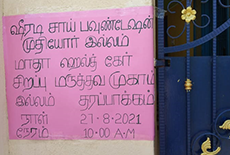 ஷீரடி சாய் பவுண்டேஷன்
முதியோர் இல்லம்
மாதா ஹெல்த் கேர்
சிறப்பு மருத்துவ முகாம்
இல்லம் தரப்பாக்கம்
நாள் 27-8-2021
நேரம் 10:00 A.M